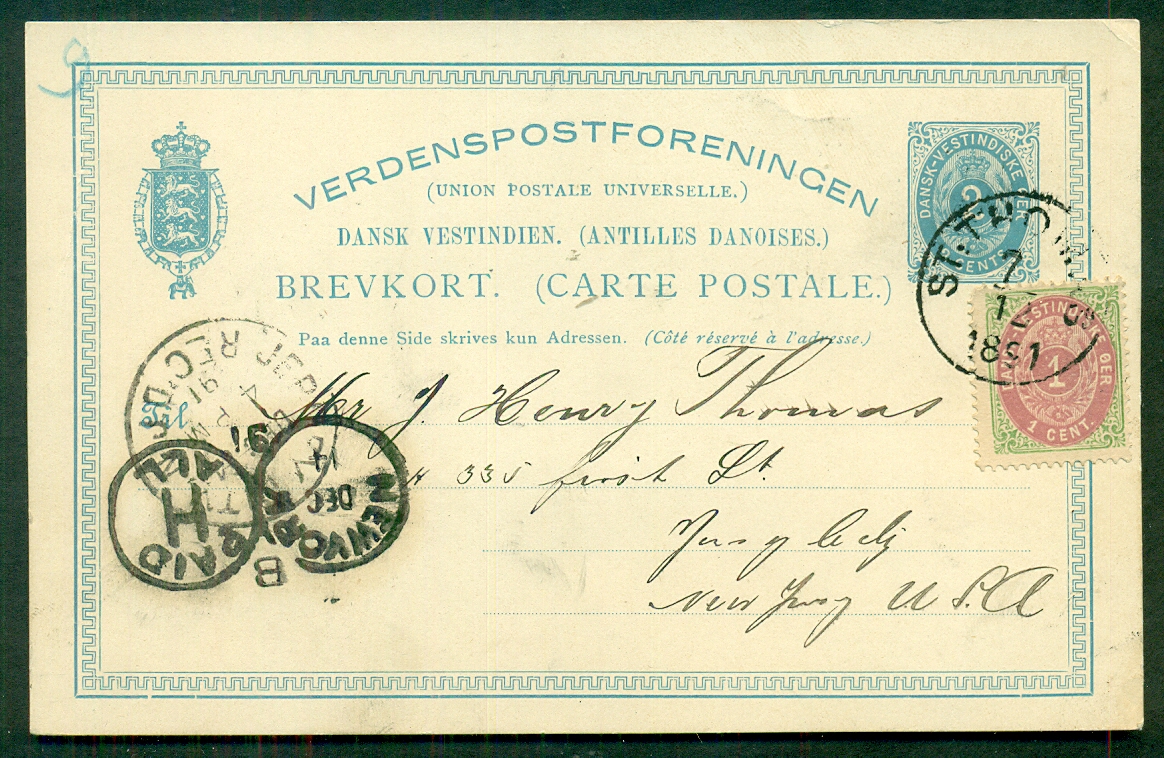 9
VERDENSPOSTFORENINGEN
(UNION POSTALE UNIVERSELLE.)
DANSK VESTINDIEN. (ANTILLES DANOISES.)
BREVKORT. (CARTE POSTALE.)
Paa denne Side skrives kun Adressen. (Côté réservé à l'adresse.)
DANSK-VESTINDISKE ØER
2
CENTS
ST: THOMAS
7
1
1891
VESTINDISKE ØER
1
1 CENT.
REC'D.
4 PM
91
Til Mr J. Henry Thomas
# 335 first St.
Jersey City
New Jersy U.S.A
NEW YORK
DEC
91
PAID
H
ALL
B